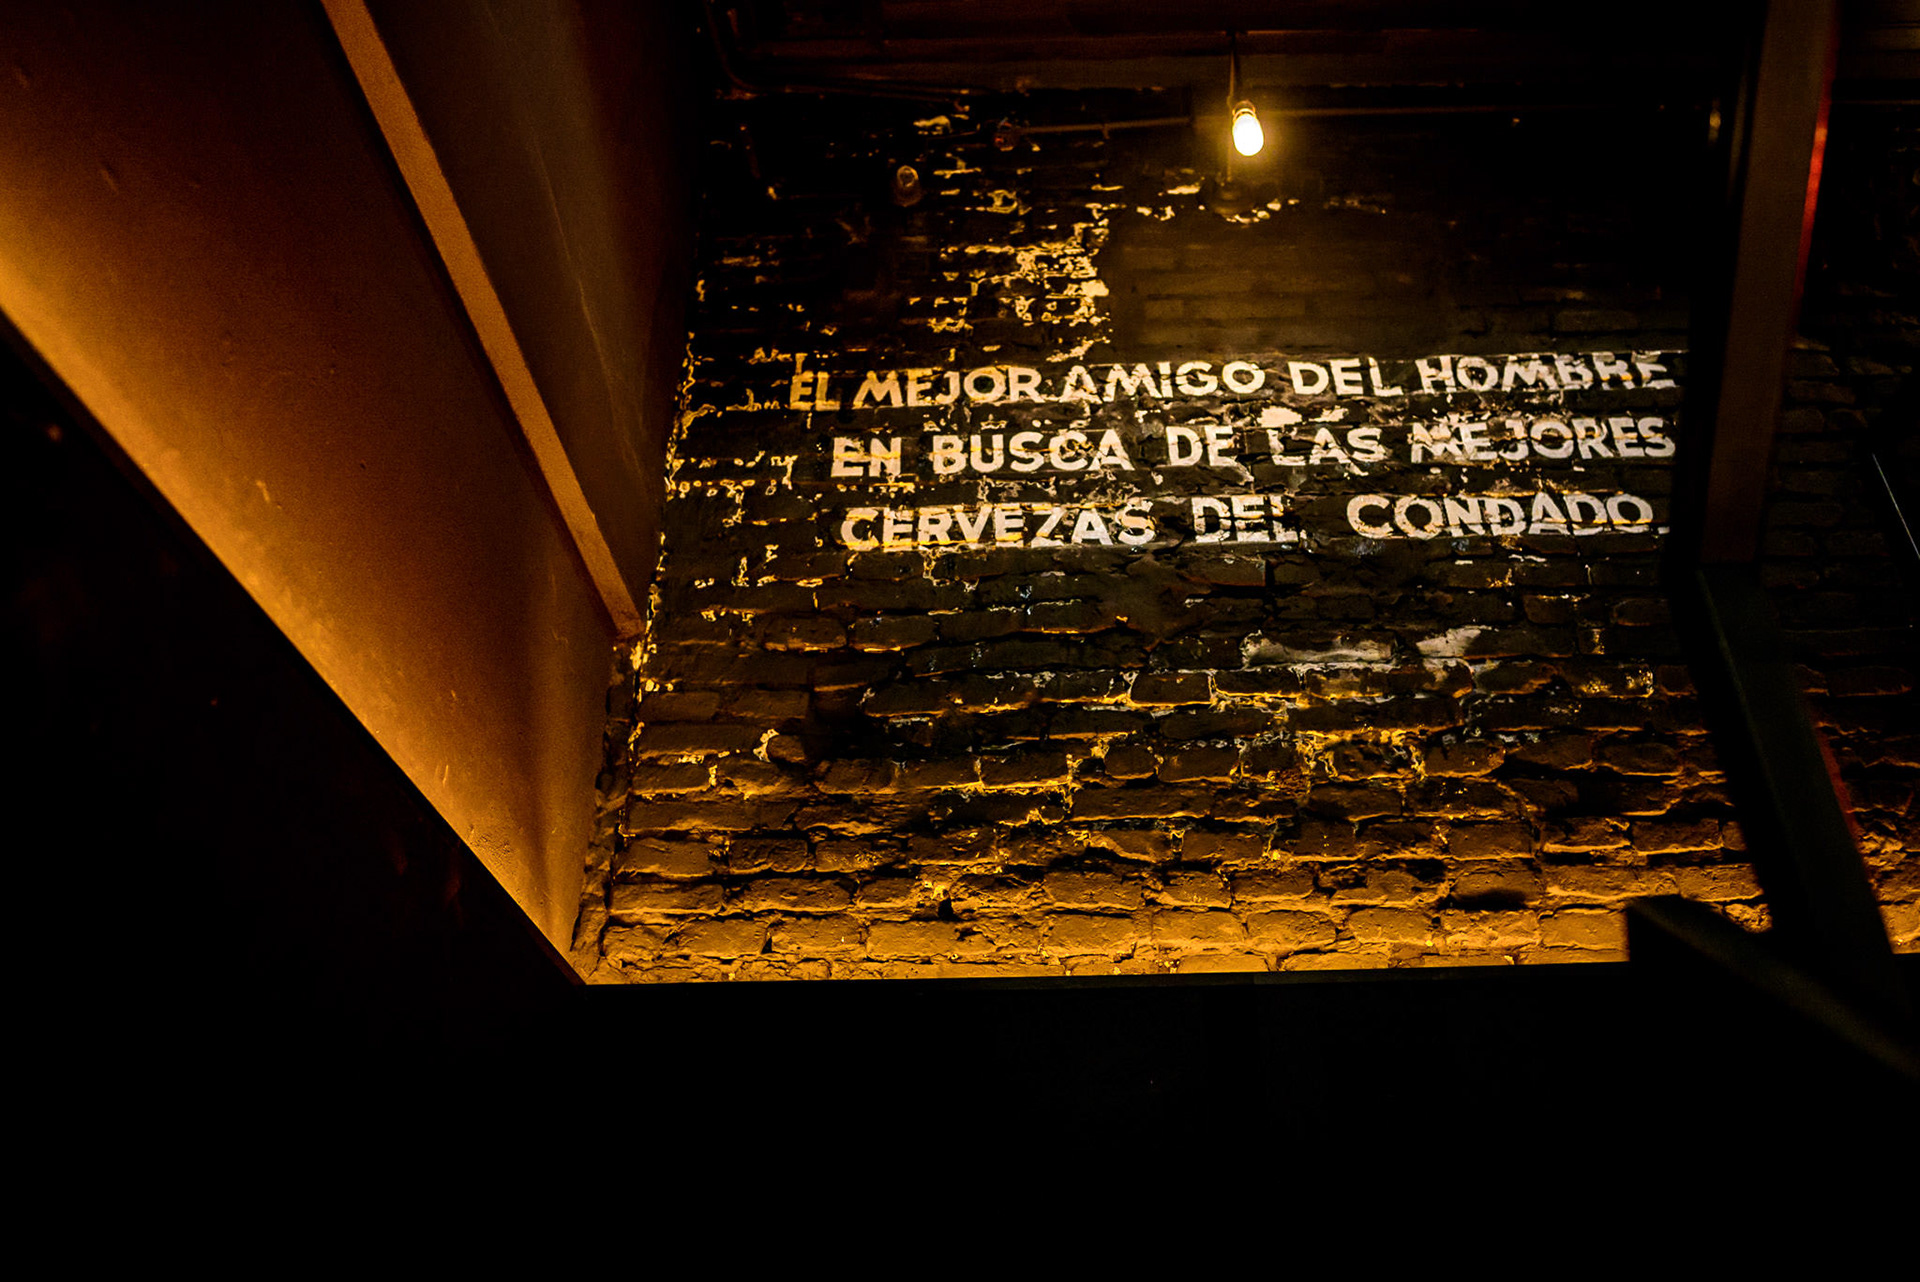 EL MEJOR AMIGO DEL HOMBRE
EN BUSCA DE LAS MEJORES
CERVEZAS DEL CONDADO.